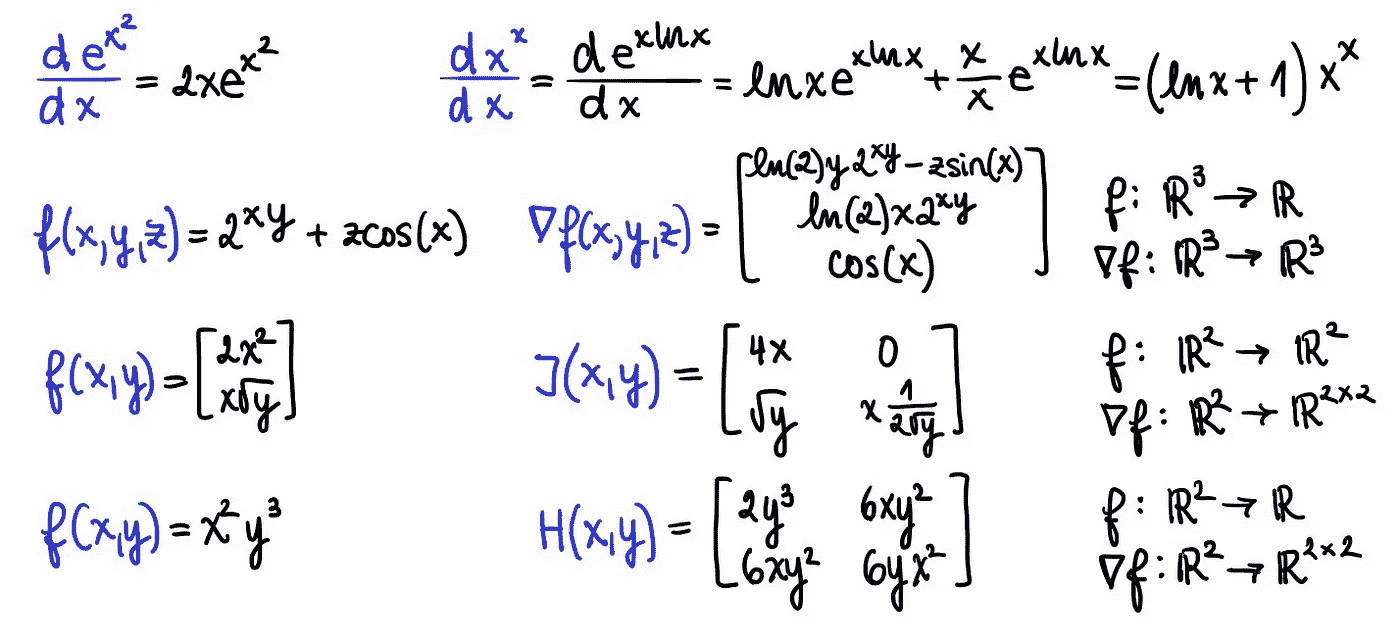 de^{x^2}/dx = 2xe^{x^2}    dx^x/dx = de^{xlnx}/dx = lnxe^{xlnx} + x/x e^{xlnx} = (lnx + 1) x^x
f(x,y,z) = 2^{xy} + zcos(x)    ∇f(x,y,z) = [ln(2)y2^{xy} − zsin(x); ln(2)x2^{xy}; cos(x)]    f: ℝ^3 → ℝ
∇f: ℝ^3 → ℝ^3
f(x,y) = [2x^2; x√y]    J(x,y) = [4x 0; √y x 1/(2√y)]    f: ℝ^2 → ℝ^2
∇f: ℝ^2 → ℝ^{2×2}
f(x,y) = x^2 y^3    H(x,y) = [2y^3 6xy^2; 6xy^2 6yx^2]    f: ℝ^2 → ℝ
∇f: ℝ^2 → ℝ^{2×2}